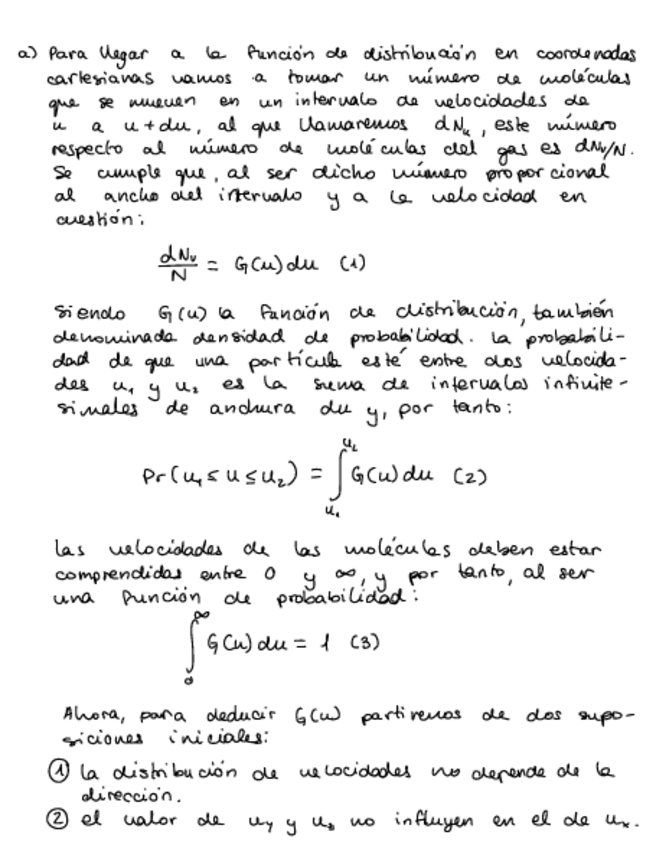 a) Para llegar a la función de distribución en coordenadas
cartesianas vamos a tomar un número de moléculas
que se mueven en un intervalo de velocidades de
u a u+du, al que llamaremos dNᵤ, este número
respecto al número de moléculas del gas es dNᵤ/N.
Se cumple que, al ser dicho número proporcional
al ancho del intervalo y a la velocidad en
cuestión:
dNᵤ/N = G(u)du (1)
Siendo G(u) la función de distribución, también
denominada densidad de probabilidad. La probabili-
dad de que una partícula esté entre dos velocida-
des u₁ y u₂ es la suma de intervalos infinite-
simales de anchura du y, por tanto:
Pr(u₁ ≤ u ≤ u₂) = ∫_{u₁}^{u₂} G(u) du (2)
Las velocidades de las moléculas deben estar
comprendidas entre 0 y ∞, y por tanto, al ser
una función de probabilidad:
∫_{0}^{∞} G(u) du = 1 (3)
Ahora, para deducir G(u) partiremos de dos supo-
siciones iniciales:
① La distribución de velocidades no depende de la
dirección.
② el valor de uᵧ y u_z no influyen en el de uₓ.